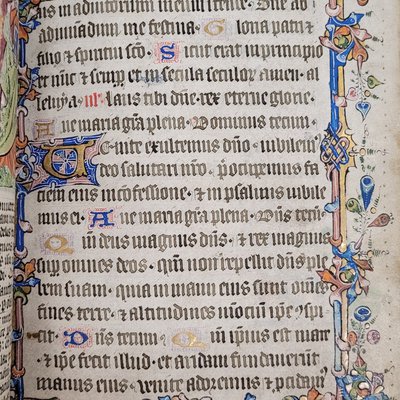 us in adiutorium meum intende. Dne ad
adiuuandum me festina. Gloria patri &
filio & spiritui sco. Sicut erat in principio
et nuc & semp et in secula seculor amen. al
leluya. ul laus tibi dne rex eterne glorie.
Aue maria gra plena. Dominus tecum.
Uenite exultemus dno iubilem
deo salutari nro. pocupemus fa
ciem eius in cofessione. & in psalmis iubile
mus ei. Aue maria gra plena. Dns tecu.
Qm deus magnus dns. & rex magnus
sup omnes deos. qm non repellit dns ple
bem suam. quia in manu eius sunt omes
fines terre. & altitudines motiu ipe cspi
cit. Dns tecum. Qm ipius est mare
& ipe fecit illud. et aridam fundauerut
manus eius. uenite adoremus & pcidam